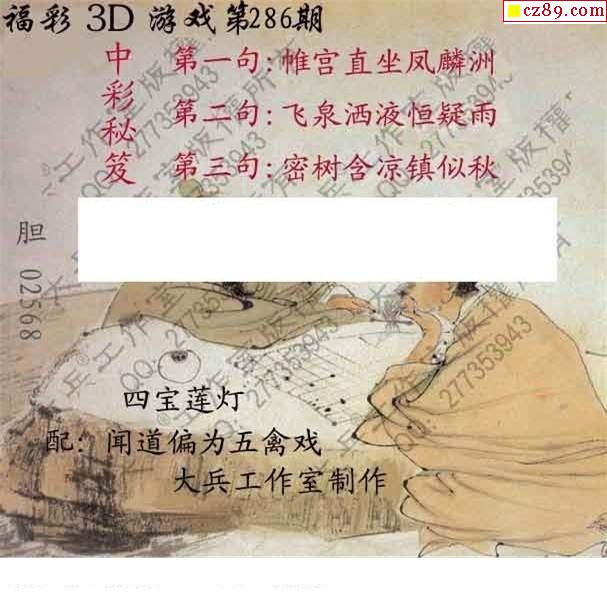 福彩3D游戏第286期
cz89.com
中彩秘笈
第一句:帷宫直坐凤麟洲
第二句:飞泉洒液恒疑雨
第三句:密树含凉镇似秋
胆 02568
四宝莲灯
配:闻道偏为五禽戏
大兵工作室制作
大兵工作室版權所有
QQ:277353943